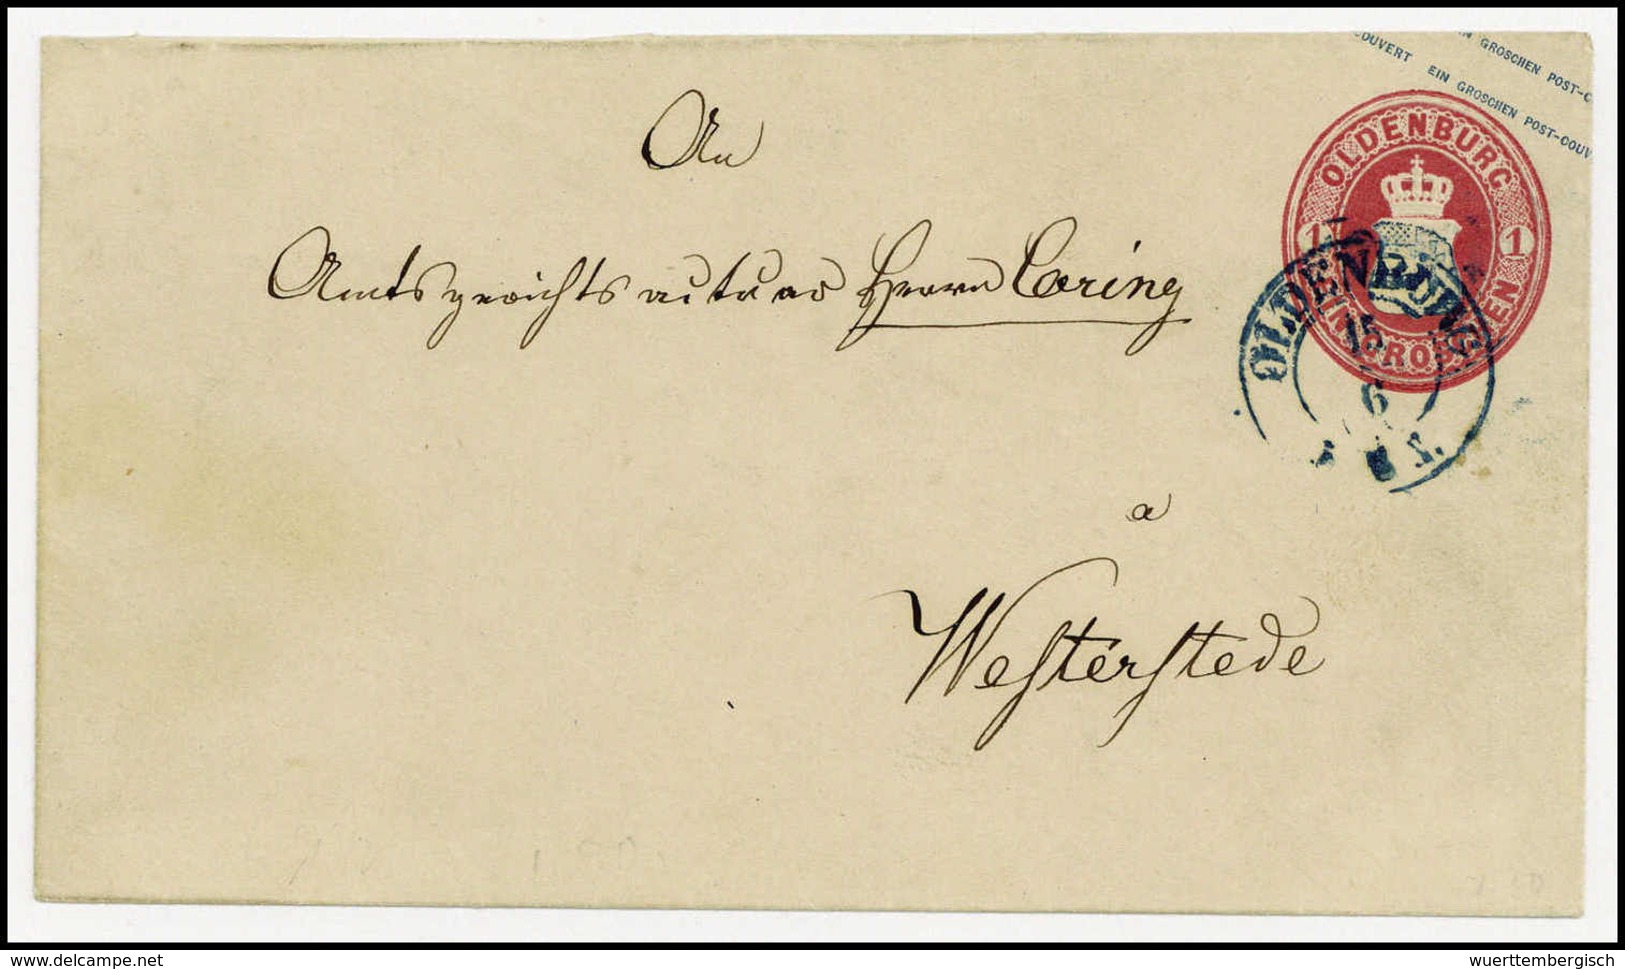 IN GROSCHEN POST-C
OUVERT EIN GROSCHEN POST-COUV
OLDENBURG
1 1
EIN GROSCHEN
OLDENBURG
15
6
An
Amtsgerichtsactuar Herrn Coring
a
Westerstede
delcampe.net
wuerttembergisch